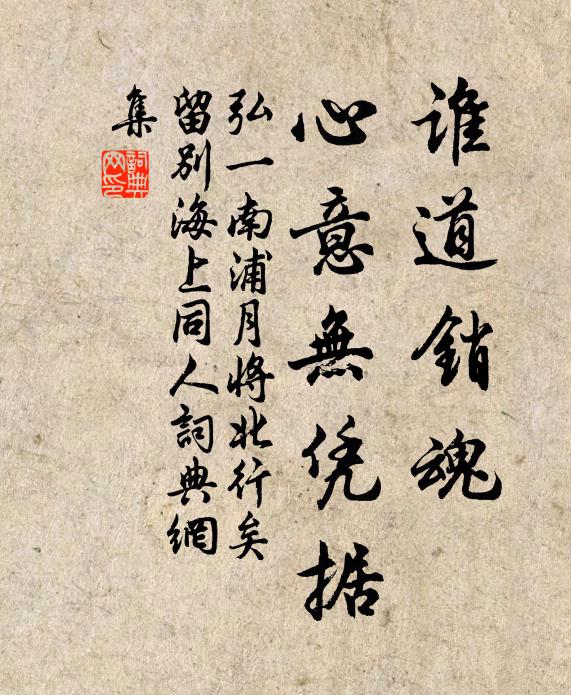 誰道銷魂
心意無凭据
弘一南浦月將北行矣
留别海上同人詞典網
集
詞典網印